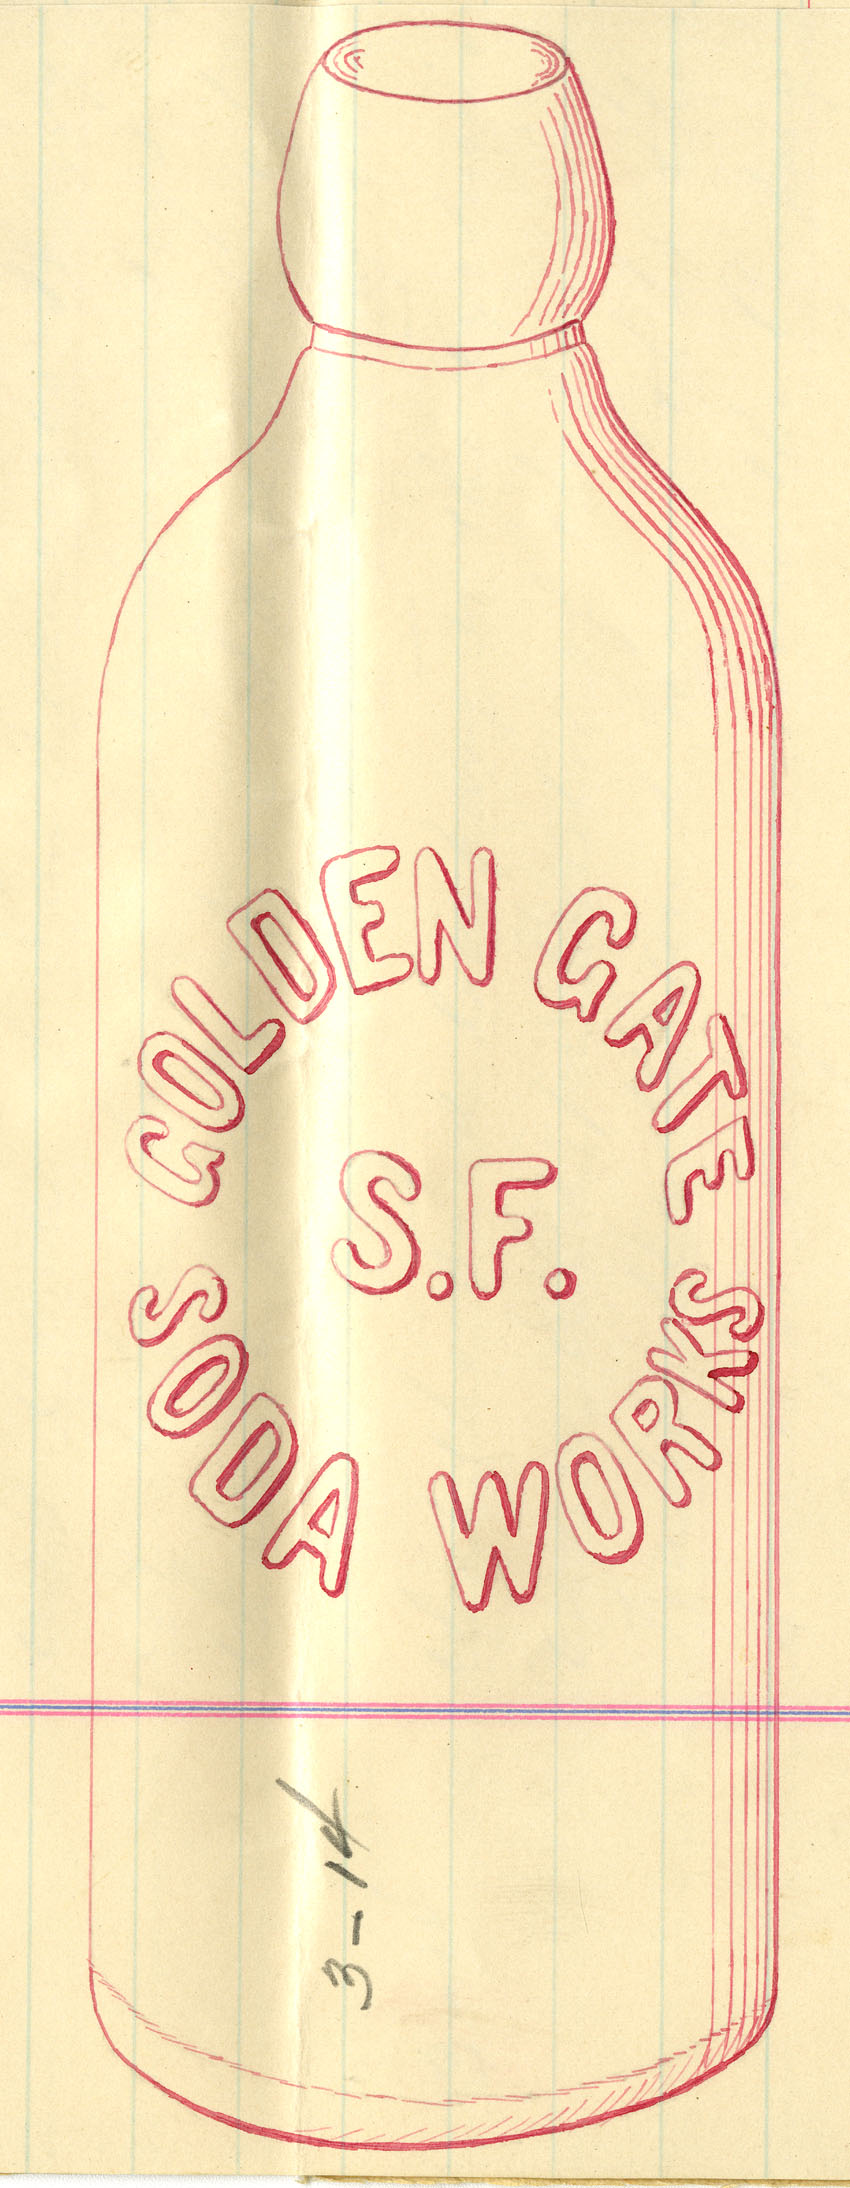 GOLDEN GATE
S.F.
SODA WORKS
3-14